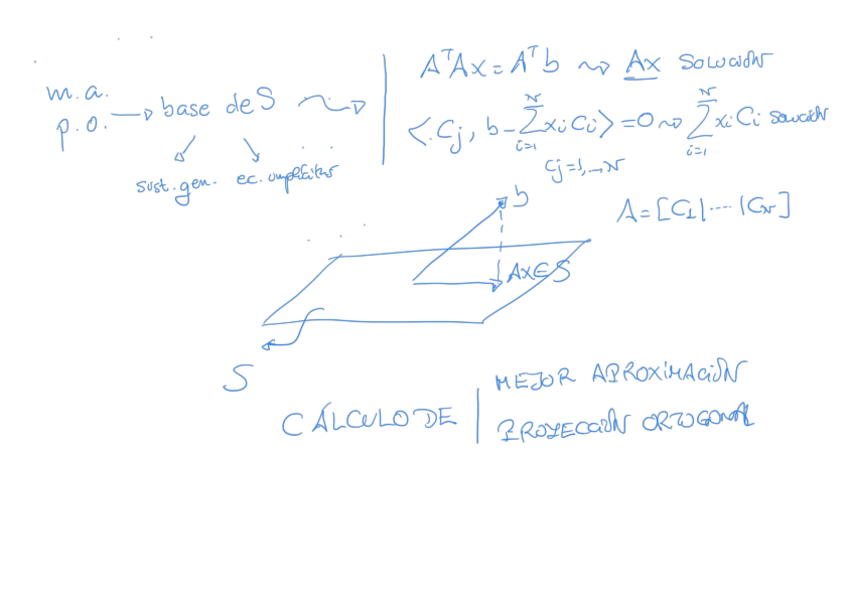 m.a.
p.o. → base de S ⇝
sist. gen. ec. implícitas
AᵀAx = Aᵀb ⇝ Ax solución
<Cj, b - ∑_{i=1}^{N} xi Ci> = 0 ⇝ ∑_{i=1}^{N} xi Ci solución
Cj=1,...N
A = [C1| ---- |CN]
b
Ax ∈ S
S
CÁLCULO DE
MEJOR APROXIMACIÓN
PROYECCIÓN ORTOGONAL